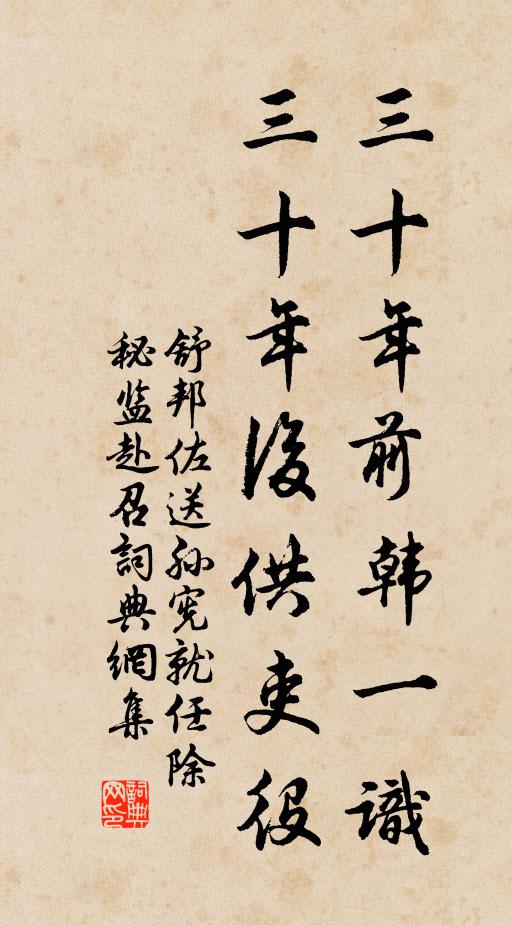 三十年前韩一識
三十年後供吏役
舒邦佐送孙宪就任除
秘监赴召詞典網集
詞典网印